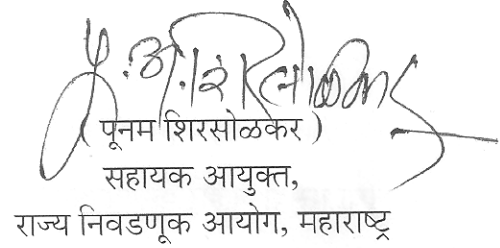 पू.अ.शिरसोळकर
( पूनम शिरसोळकर )
सहायक आयुक्त,
राज्य निवडणूक आयोग, महाराष्ट्र